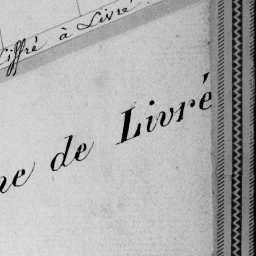 Siffré à Livré
ne de Livré